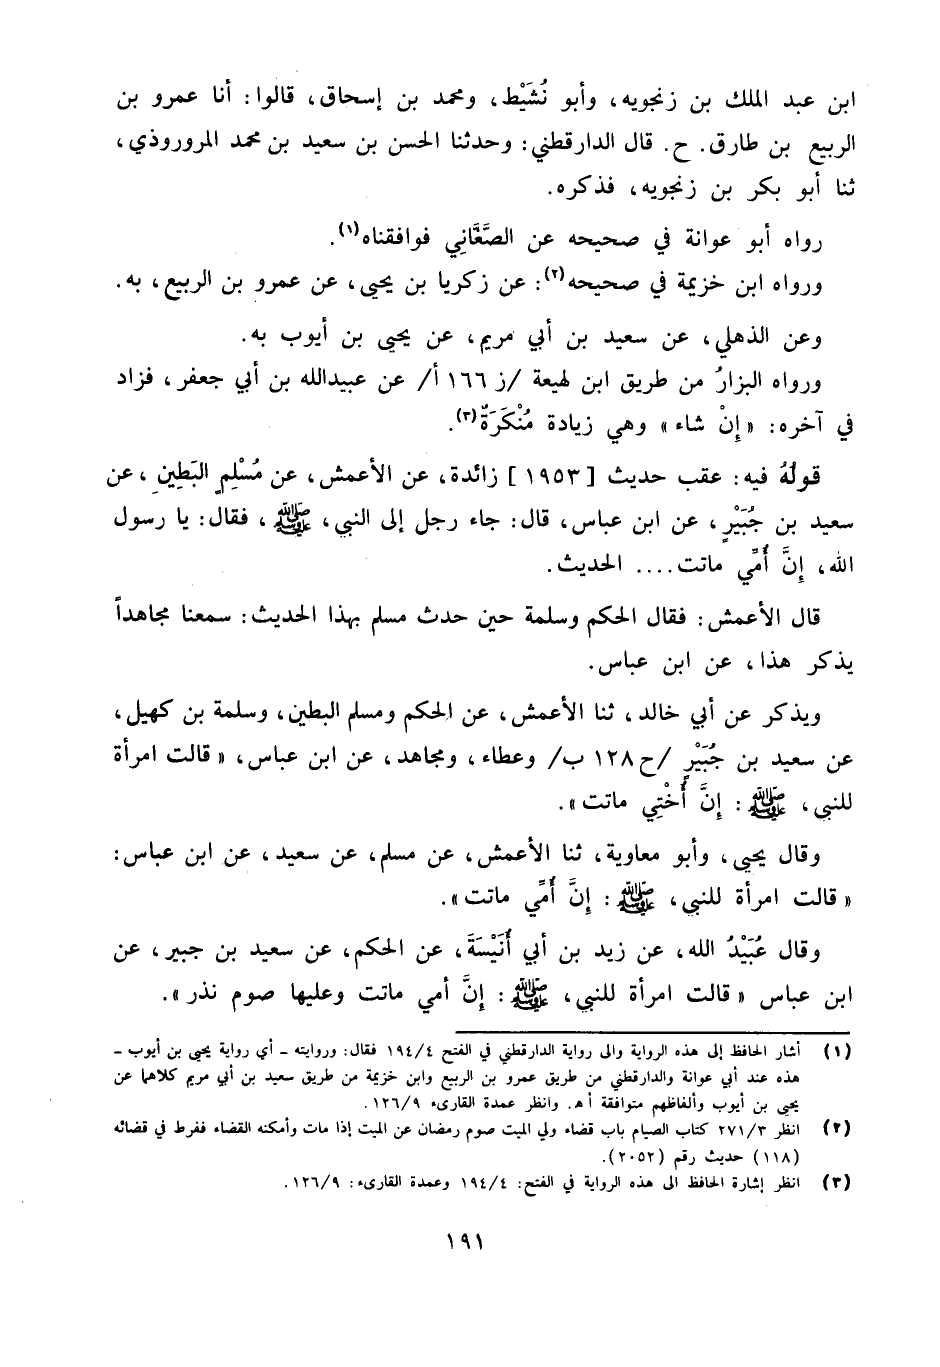 ابن عبد الملك بن زنجويه، وأبو نُشَيْط، ومحمد بن إسحاق، قالوا: أنا عمرو بن
الربيع بن طارق. ح. قال الدارقطني: وحدثنا الحسن بن سعيد بن محمد المروروذي،
ثنا أبو بكر بن زنجويه، فذكره.
رواه أبو عوانة في صحيحه عن الصَّغَّانِي فوافقناه(١).
ورواه ابن خزيمة في صحيحه(٢): عن زكريا بن يحيى، عن عمرو بن الربيع، به.
وعن الذهلي، عن سعيد بن أبي مريم، عن يحيى بن أيوب به.
ورواه البزارُ من طريق ابن لهيعة /ز ١٦٦ أ/ عن عبيدالله بن أبي جعفر، فزاد
في آخره: «إِنْ شاء» وهي زيادة مُنْكَرَةٌ(٣).
قولُهُ فيه: عقب حديث [١٩٥٣] زائدة، عن الأعمش، عن مُسْلِمٍ البَطِينِ، عن
سعيد بن جُبَيْرٍ، عن ابن عباس، قال: جاء رجل إلى النبي، ﷺ، فقال: يا رسول
الله، إِنَّ أُمِّي ماتت.... الحديث.
قال الأعمش: فقال الحكم وسلمة حين حدث مسلم بهذا الحديث: سمعنا مجاهداً
يذكر هذا، عن ابن عباس.
ويذكر عن أبي خالد، ثنا الأعمش، عن الحكم ومسلم البطين، وسلمة بن كهيل،
عن سعيد بن جُبَيْرٍ /ح ١٢٨ ب/ وعطاء، ومجاهد، عن ابن عباس، «قالت امرأة
للنبي، ﷺ: إِنَّ أُخْتِي ماتت».
وقال يحيى، وأبو معاوية، ثنا الأعمش، عن مسلم، عن سعيد، عن ابن عباس:
«قالت امرأة للنبي، ﷺ: إِنَّ أُمِّي ماتت».
وقال عُبَيْدُ الله، عن زيد بن أبي أُنَيْسَةَ، عن الحكم، عن سعيد بن جبير، عن
ابن عباس «قالت امرأة للنبي، ﷺ: إِنَّ أمي ماتت وعليها صوم نذر».
(١) أشار الحافظ إلى هذه الرواية والى رواية الدارقطني في الفتح ١٩٤/٤ فقال: وروايته - أي رواية يحيى بن أيوب -
هذه عند أبي عوانة والدارقطني من طريق عمرو بن الربيع وابن خزيمة من طريق سعيد بن أبي مريم كلاهما عن
يحيى بن أيوب وألفاظهم متوافقة أ هـ. وانظر عمدة القارىء ١٢٦/٩.
(٢) انظر ٢٧١/٣ كتاب الصيام باب قضاء ولي الميت صوم رمضان عن الميت إذا مات وأمكنه القضاء ففرط في قضائه
(١١٨) حديث رقم (٢٠٥٢).
(٣) انظر إشارة الحافظ الى هذه الرواية في الفتح: ١٩٤/٤ وعمدة القارىء: ١٢٦/٩.
١٩١